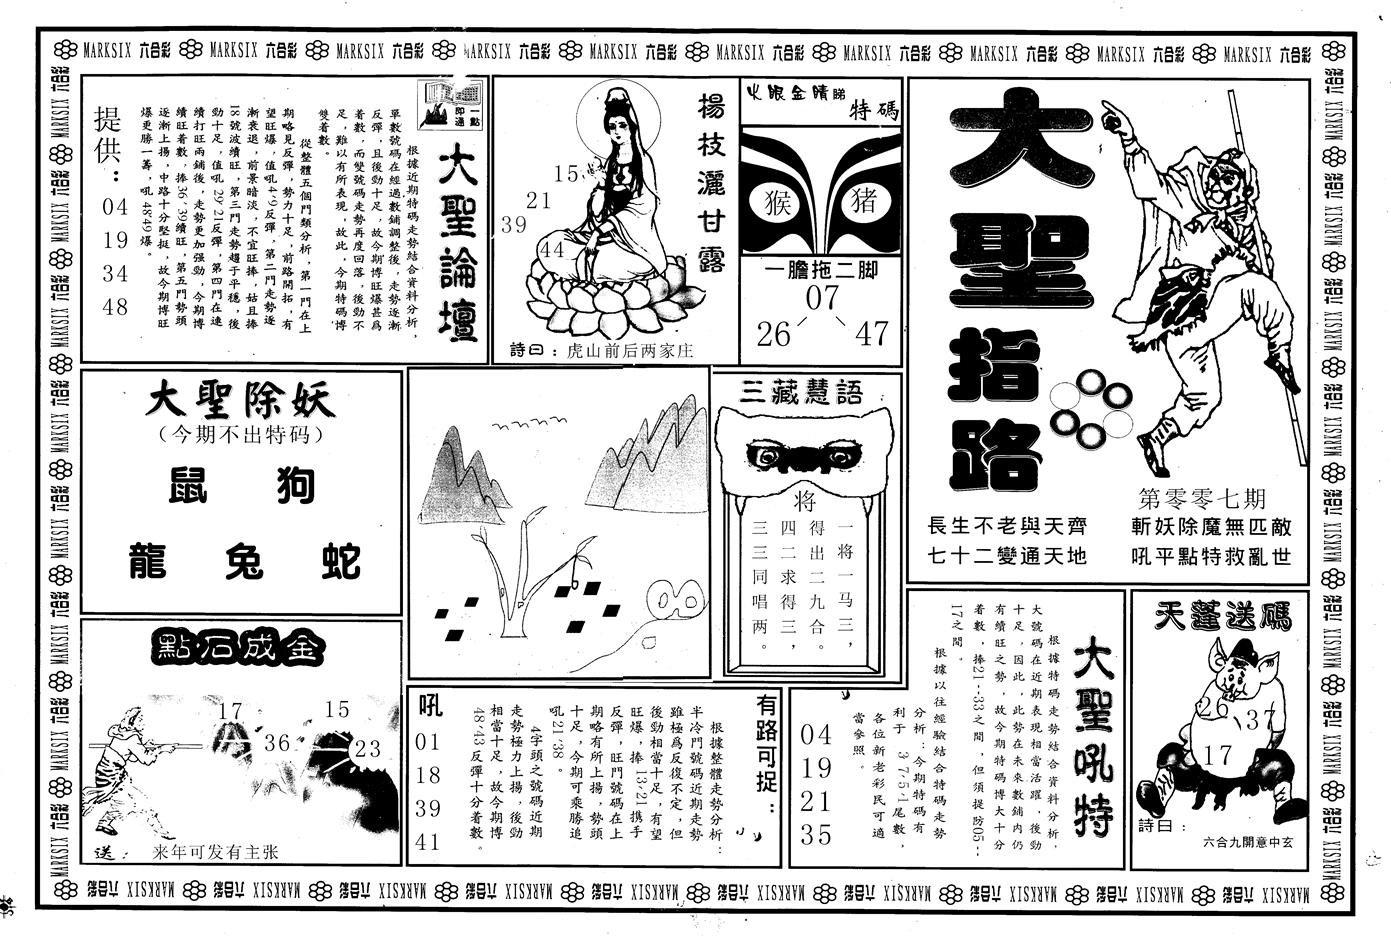 MARKSIX 六合彩 MARKSIX 六合彩 MARKSIX 六合彩 MARKSIX 六合彩 MARKSIX 六合彩 MARKSIX 六合彩 MARKSIX 六合彩 MARKSIX 六合彩 MARKSIX 六合彩 MARKSIX 六合彩
大聖指路
第零零七期
斬妖除魔無匹敵
吼平點特救亂世
長生不老與天齊
七十二變通天地
火眼金睛睇
特碼
猴
猪
一膽拖二脚
07
26
47
楊枝灑甘露
15
21
39
44
詩曰：虎山前后两家庄
一點
即通
大聖論壇
根據近期特碼走勢結合資料分析，
單數號碼在經過數鋪調整後，走勢逐漸
反彈，且後勁十足，故今期博旺爆甚爲
着數，而雙號碼走勢再度回落，後勁不
足，難以有所表現，故此，今期特碼博
雙着數。
從整體五個門類分析，第一門在上
期略見反彈，勢力十足，前路開拓，有
望旺爆，值吼4·9反彈，第二門走勢逐
漸衰退，前景暗淡，不宜旺捧，姑且捧
18號波續旺，第三門走勢趨于平穩，後
勁十足，值吼29·21反彈，第四門在連
續打旺兩鋪後，走勢更加强勁，今期博
續旺着數，捧36·39續旺，第五門勢頭
逐漸上揚，中路十分堅挺，故今期博旺
爆更勝一籌，吼48·49爆。
提供：
04
19
34
48
大聖除妖
（今期不出特码）
鼠
狗
龍
兔
蛇
三藏慧語
将
一将一马三，
得出二九合。
四二求得三，
三三同唱两。
點石成金
17
36
15
23
送：
来年可发有主张
有路可捉：
根據整體走勢分析：
半冷門號碼近期走勢
雖極爲反復不定，但
後勁相當十足，有望
旺爆，捧13·21携手
反彈，旺門號碼在上
期略有所上揚，勢頭
十足，今期可乘勝追
吼21·38。
4字頭之號碼近期
走勢極力上揚，後勁
相當十足，故今期博
48·43反彈十分着數。
吼
01
18
39
41
大聖吼特
根據特碼走勢結合資料分析，
大號碼在近期表現相當活躍，後勁
十足，因此，此勢在未來數鋪内仍
有續旺之勢，故今期特碼博大十分
着數，捧21--33之間，但須提防05--
17之間。
根據以往經驗結合特碼走勢
分析：今期特碼有
利于3·7·5·1尾數，
各位新老彩民可適
當參照。
04
19
21
35
天蓬送碼
26
37
17
詩曰：
六合九開意中玄